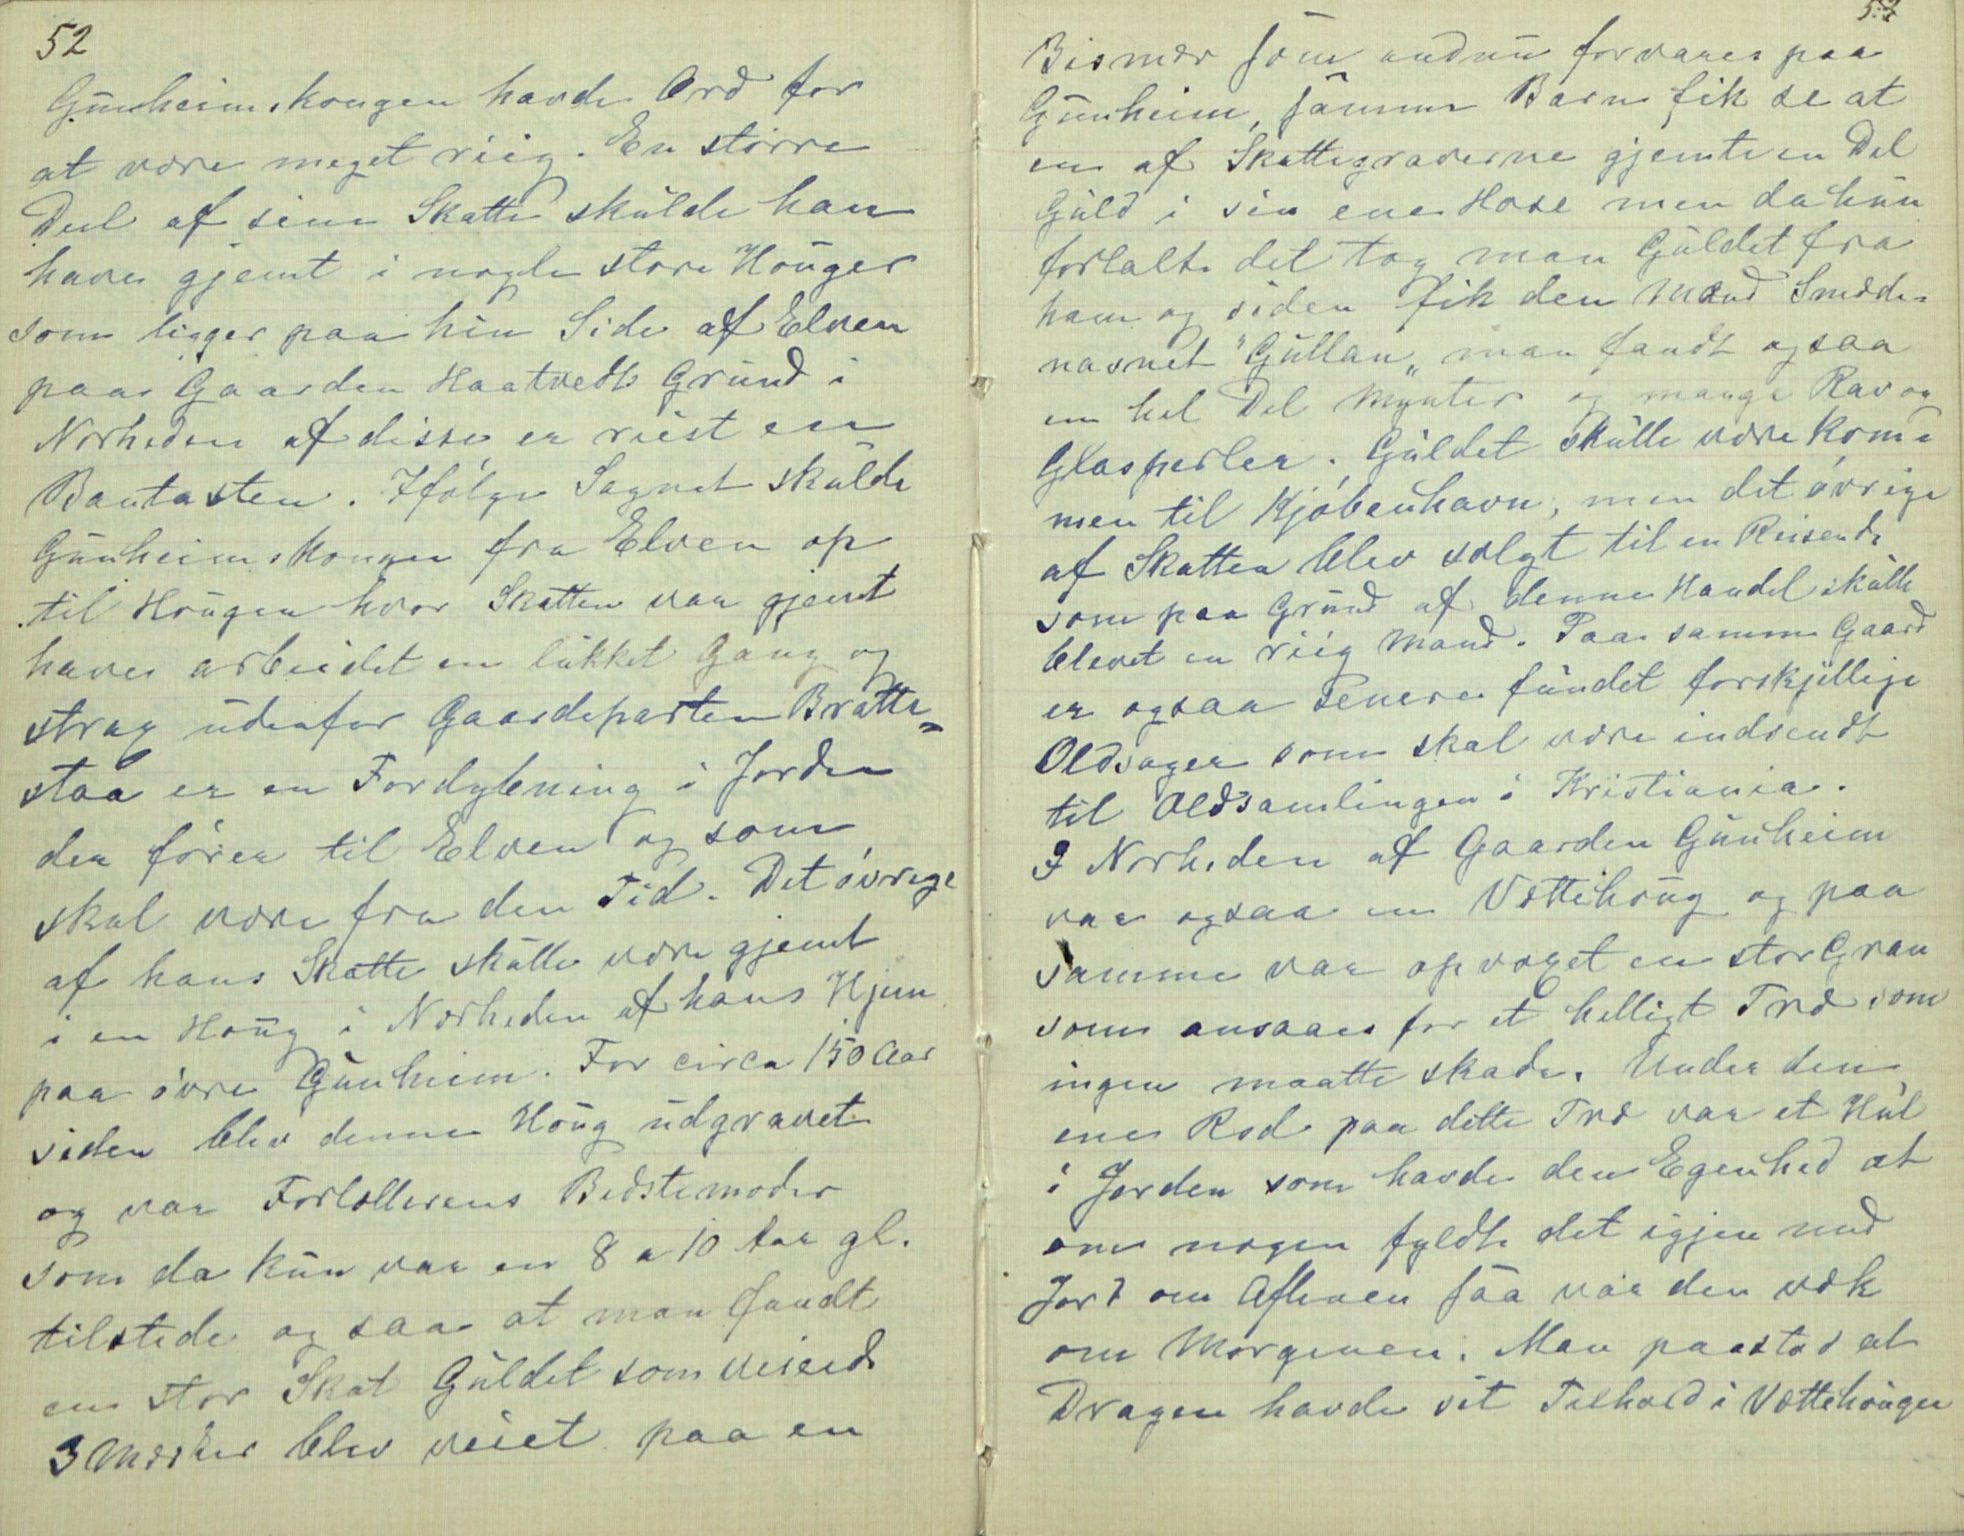 52
Gunheimskongen havde Ord for
at være meget riig. En større
Deel af sine Skatte skulde han
have gjemt i nogle store Houger
som ligger paa hin Side af Elven
paa Gaarden Haatvedts Grund i
Nærheden af disse er riest en
Bautasten. Ifølge Sagnet skulde
Gunheimskongen fra Elven op
til Hougen hvor Skatten var gjemt
have arbeidet en lukket Gang og
strax udenfor Gaardeparten Bratte=
staa er en Fordybening i Jorden
der fører til Elven og som
skal være fra den Tid. Det øvrige
af hans Skatte skulle være gjemt
i en Houg i Nærheden af hans Hjem
paa øvre Gunheim. For circa 150 Aar
siden blev denne Houg udgravet
og var Fortællerens Bedstemoder
som da kun var en 8 a 10 Aar gl.
tilstede og saa at man fandt
en stor Skat Guldet som veiede
3 Mærker blev veiet paa en
Bismer som endnu forvares paa
Gunheim, samme Barn fik se at
en af Skattegraverne gjemte en Del
Guld i sin ene Hose men da hun
fortalte det tog man Guldet fra
ham og siden fik den Mand Smæde-
navnet "Gullan„ man fandt ogsaa
en hel Del Mynter og mange Rav og
Glasperler. Guldet skulle være kom=
men til Kjøbenhavn, men det øvrige
af Skatten blev solgt til en Reisende
som paa Grund af denne Handel skulle
blevet en riig Mand. Paa samme Gaard
er ogsaa senere fundet forskjellige
Oldsager som skal være indsendt
til Oldsamlingen i Kristiania.
I Nærheden af Gaarden Gunheim
var ogsaa en Vættehoug og paa
samme var opvoxet en stor Gran
som ansaaes for et helligt Træ som
ingen maatte skade. Under den
ene Rod paa dette Træ var et Hul
i Jorden som havde den Egenhed at
om nogen fyldte det igjen med
Jord om Aftenen saa var den væk
om Morgenen. Man paastod at
Dragen havde sit Tilhold i Vættehougen